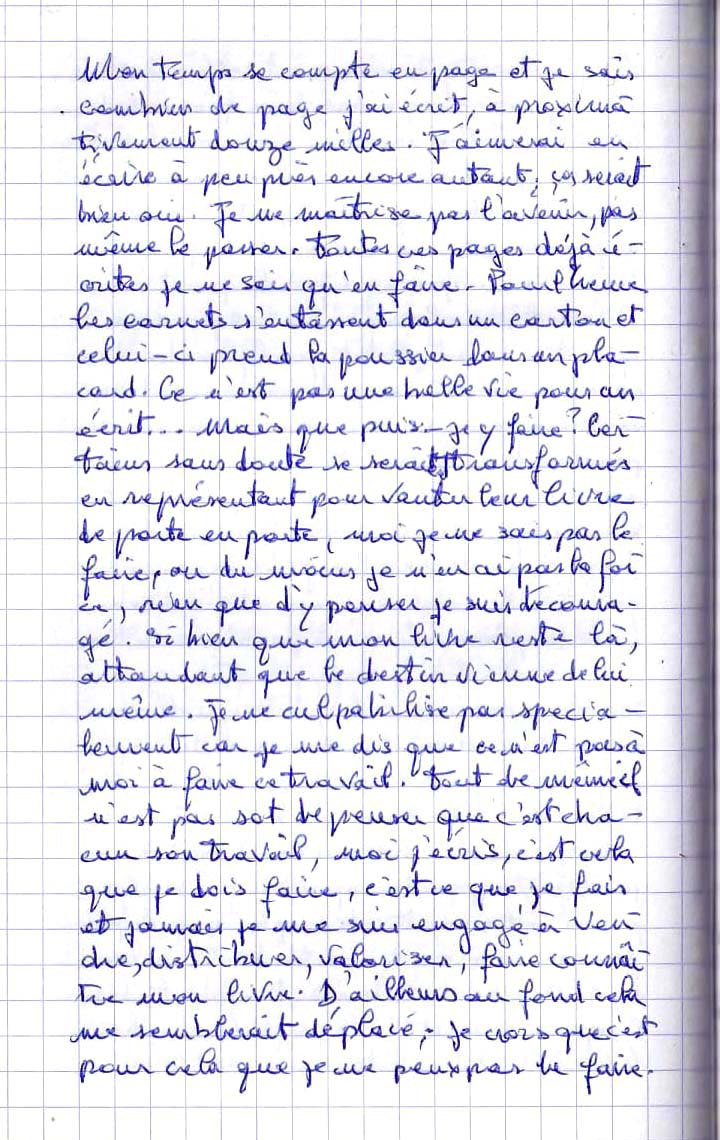 Mon temps se compte en page et je sais
combien de page j'ai écrit, à proxima
tivement douze milles. J'aimerai en
écrire à peu près encore autant, ça serait
bien oui. Je ne maîtrise pas l'avenir, pas
même le passer. Toutes ces pages déjà é-
crites je ne sais qu'en faire. Pour l'heure
les carnets s'entassent dans un carton et
celui-ci prend la poussier dans un pla-
card. Ce n'est pas une belle vie pour un
écrit... Mais que puis-je y faire? Cer
tains sans doute se serait transformés
en représentant pour vanter leur livre
de porte en porte, moi je ne sais pas le
faire, ou du moins je n'en ai pas la foi
, rien que d'y penser je suis découra-
gé. Si bien que mon livre reste là,
attandant que le destin vienne de lui
même. Je ne culpabilise pas specia-
lement car je me dis que ce n'est pas à
moi à faire ce travail. Tout de même il
n'est pas sot de penser que c'est cha-
cun son travail, moi j'écris, c'est cela
que je dois faire, c'est ce que je fais
et jamais je me suis engagé à ven
dre, distribuer, valoriser, faire connaî
tre mon livre. D'ailleurs au fond cela
me semblerait déplacé, je crois que c'est
pour cela que je ne peux pas le faire.